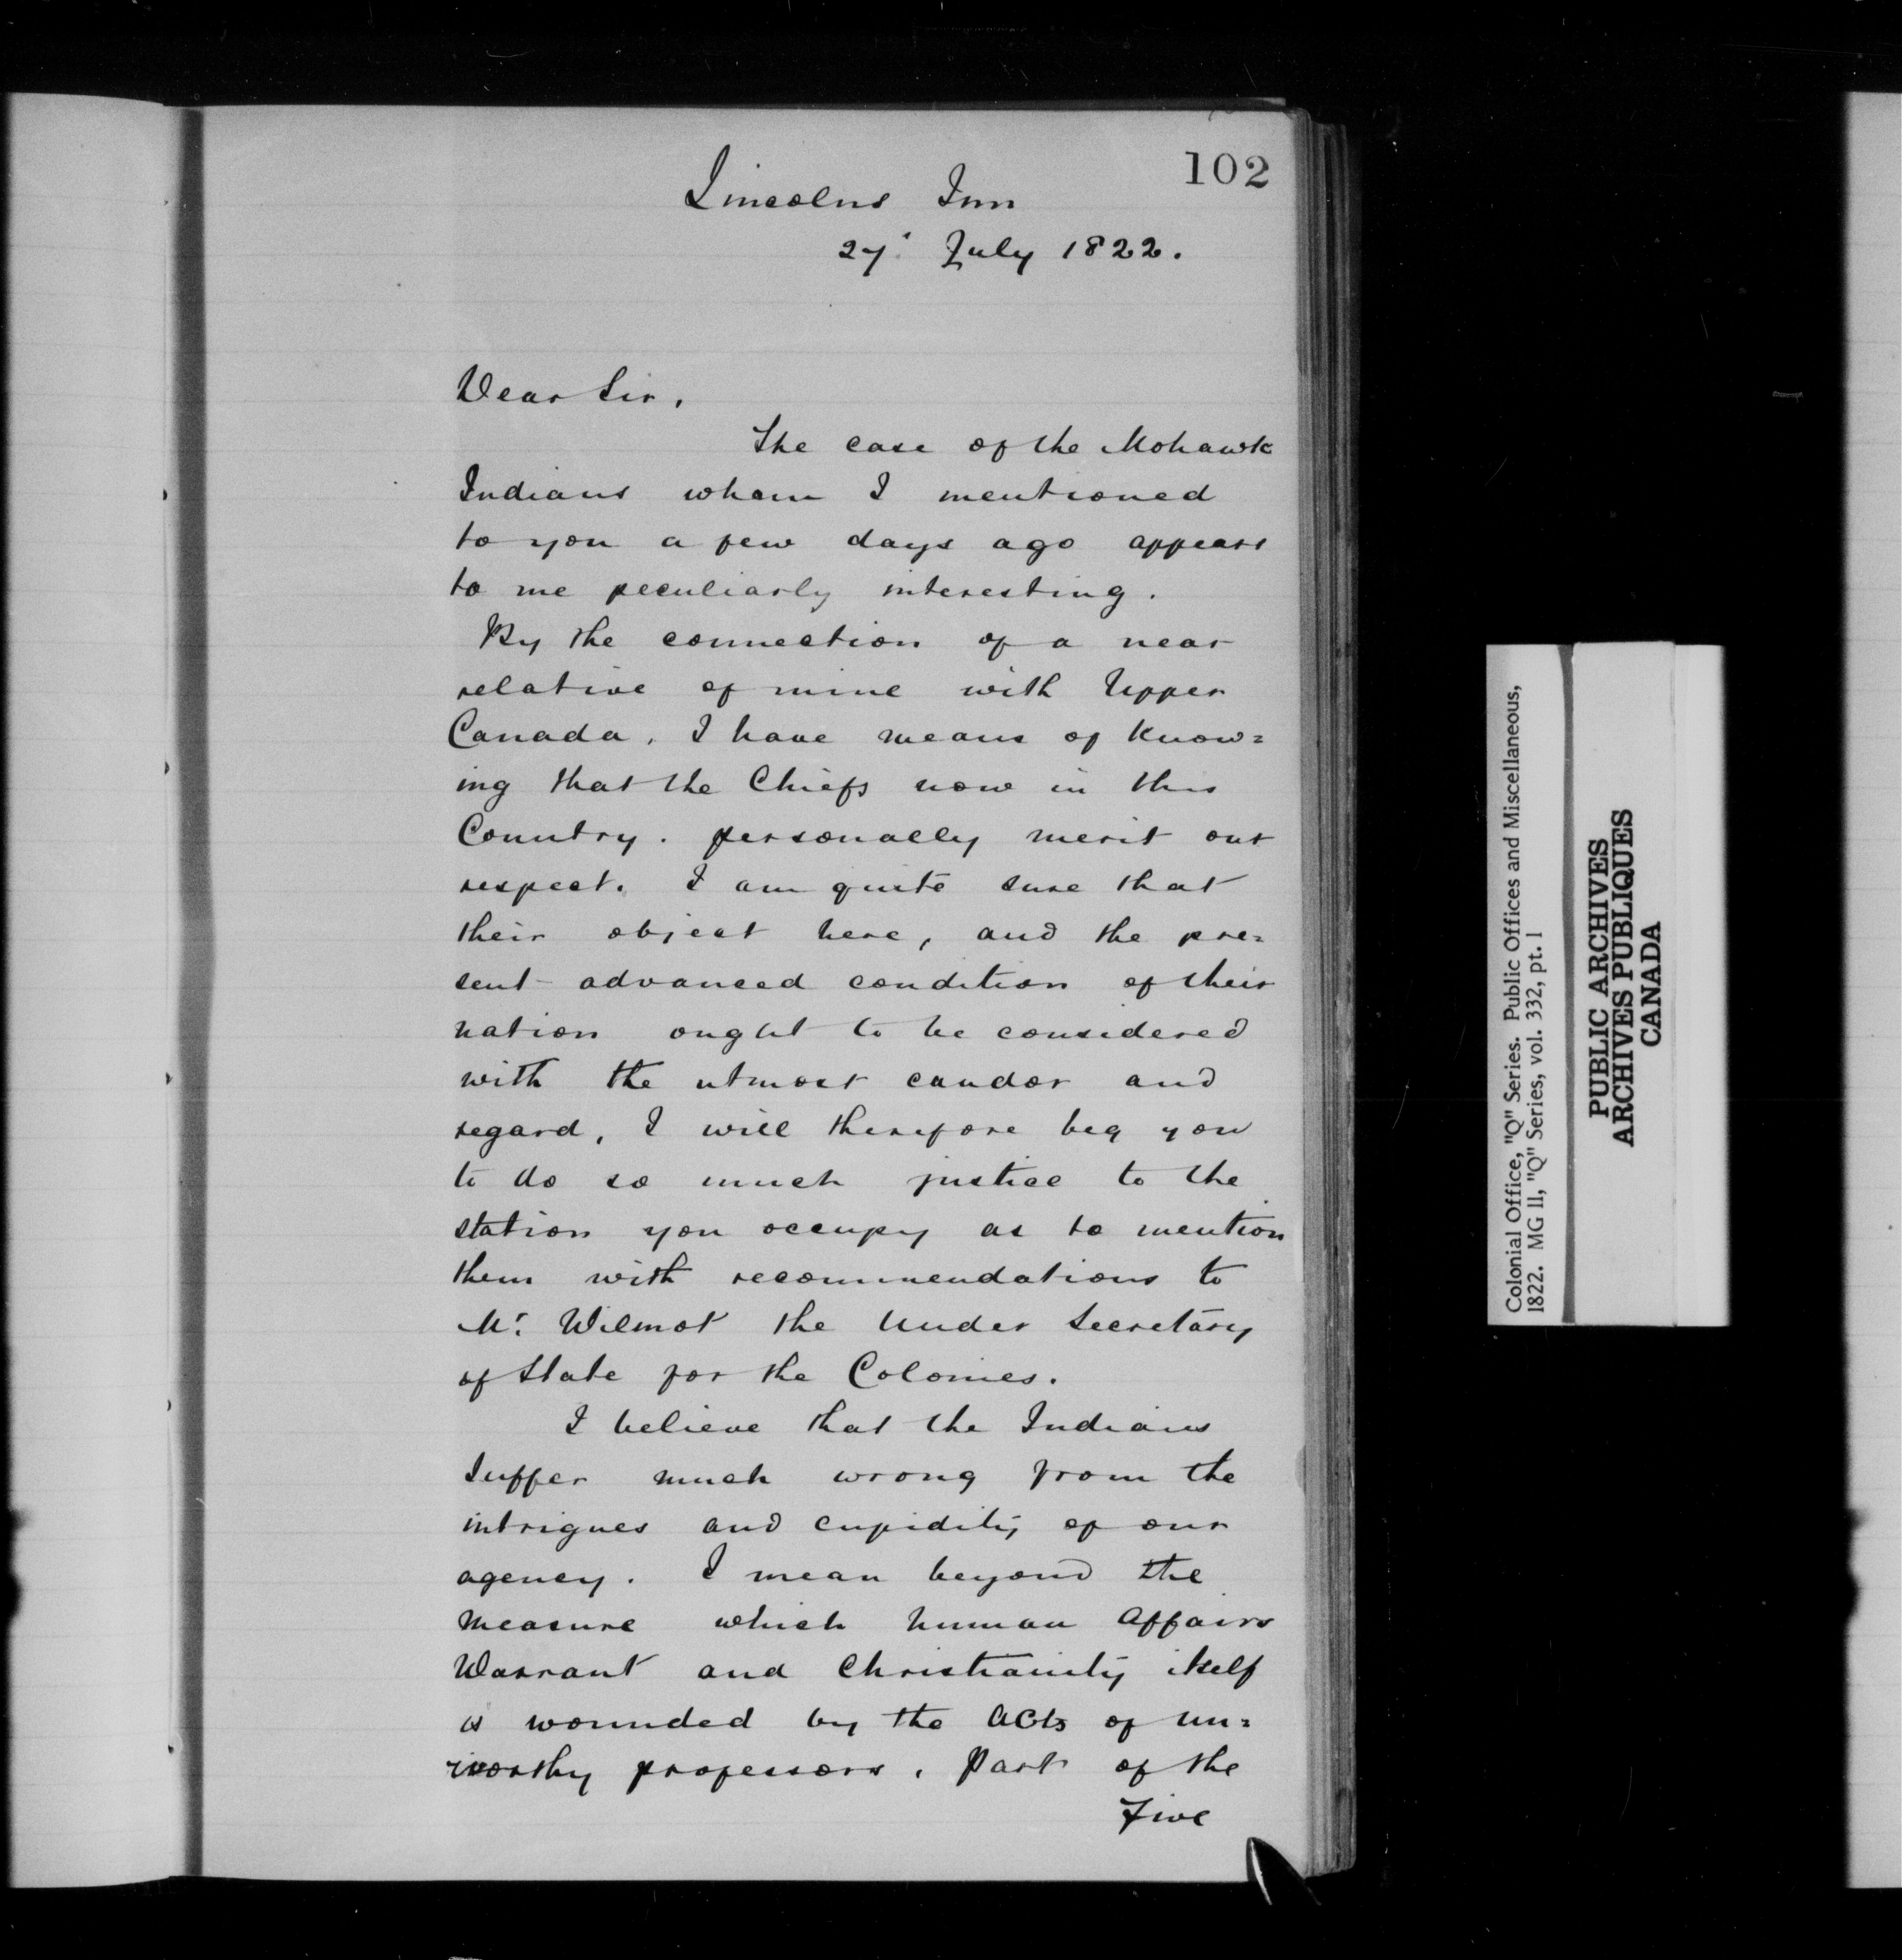 102
Lincolns Inn
27. July 1822.
Dear Sir,
The case of the Mohawk
Indians whom I mentioned
to you a few days ago appears
to me peculiarly interesting.
By the connection of a near
relative of mine with Upper
Canada, I have means of know=
ing that the Chiefs now in this
Country. personally merit our
respect. I am quite sure that
their object here, and the pre=
sent advanced condition of their
nation ought to be considered
with the utmost candor and
regard, I will therefore beg you
to do so much justice to the
station you occupy as to mention
them with recommendations to
Mr. Wilmot the Under Secretary
of State for the Colonies.
I believe that the Indians
suffer much wrong from the
intrigues and cupidity of our
agency. I mean beyond the
measure which human affairs
Warrant and Christianity itself
is wounded by the acts of un=
worthy professors. Part of the
Five
Colonial Office, "Q" Series. Public Offices and Miscellaneous,
1822. MG 11, "Q" Series, vol. 332, pt. 1
PUBLIC ARCHIVES
ARCHIVES PUBLIQUES
CANADA